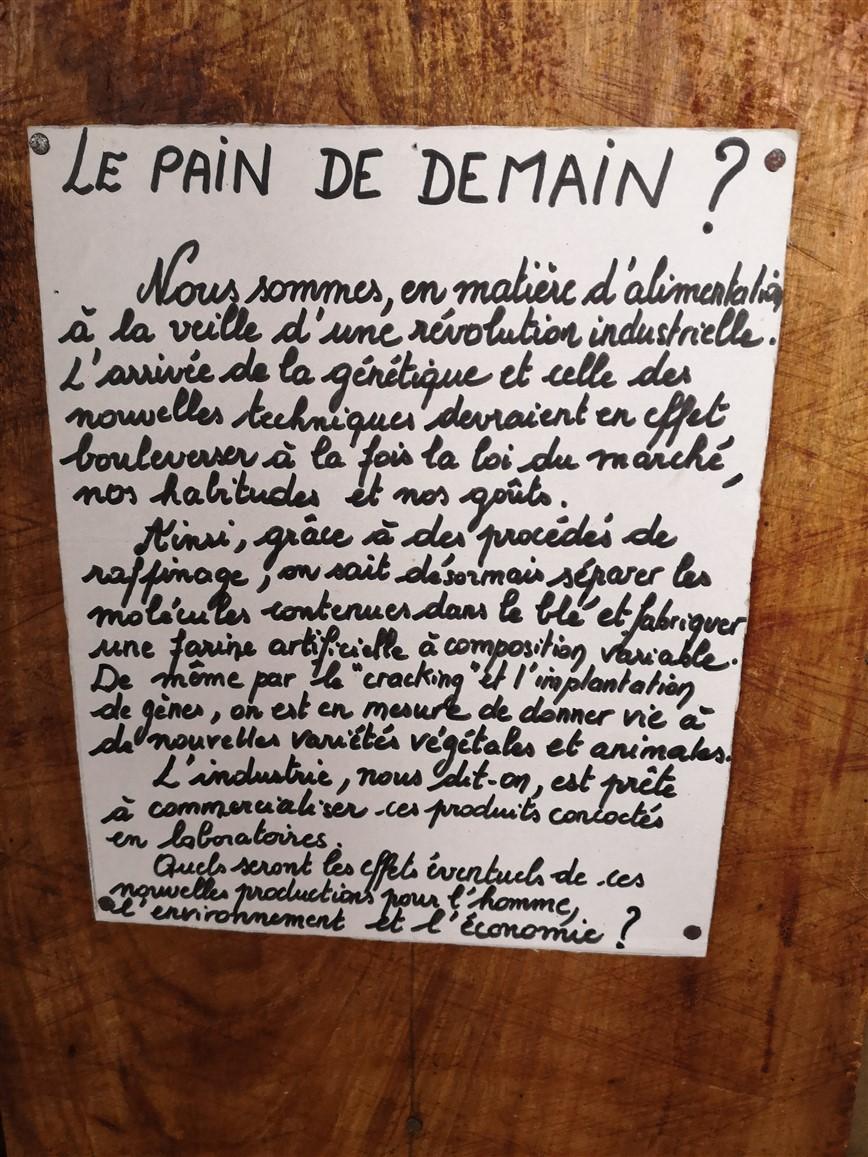 LE PAIN DE DEMAIN ?
Nous sommes, en matière d'alimentation
à la veille d'une révolution industrielle.
L'arrivée de la génétique et celle des
nouvelles techniques devraient en effet
bouleverser à la fois la loi du marché,
nos habitudes et nos goûts.
Ainsi, grâce à des procédés de
raffinage, on sait désormais séparer les
molécules contenues dans le blé et fabriquer
une farine artificielle à composition variable.
De même par le "cracking" et l'implantation
de gènes, on est en mesure de donner vie à
de nouvelles variétés végétales et animales.
L'industrie, nous dit-on, est prête
à commercialiser ces produits concoctés
en laboratoires.
Quels seront les effets éventuels de ces
nouvelles productions pour l'homme,
l'environnement et l'économie ?